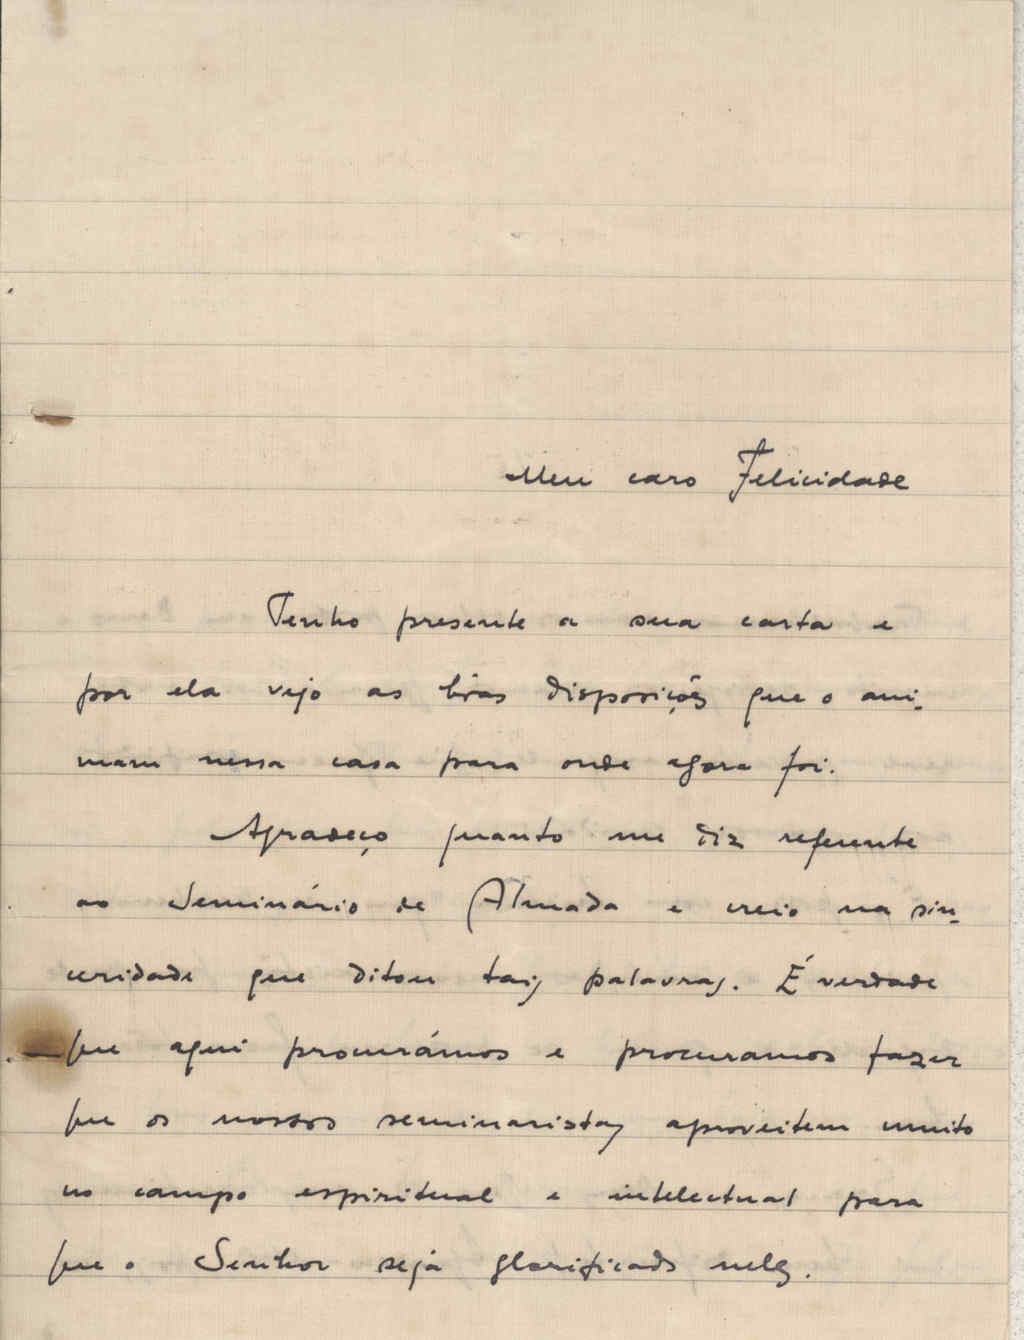 Meu caro Felicidade
Tenho presente a sua carta e
por ela vejo as bôas disposições que o ani-
mam nessa casa para onde agora foi.
Agradeço quanto me diz referente
ao Seminário de Almada e creio na sin-
ceridade que ditou tais palavras. É verdade
que aqui procurámos e procuramos fazer
que os nossos seminaristas aproveitem muito
no campo espiritual e intelectual para
que o Senhor seja glorificado neles.